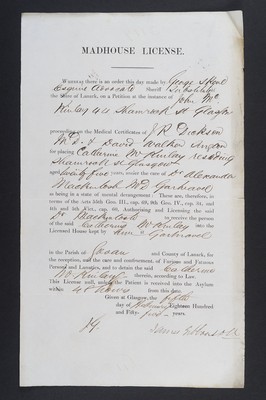 MADHOUSE LICENSE.
WHEREAS there is an order this day made by George Skene
Esquire Advocate Sheriff Substitute
the Shire of Lanark, on a Petition at the instance of
John Mc
Kinlay 44 Shamrock St Glasgow
proceeding on the Medical Certificates of J R Dickson
M.D. & David Walker Surgeon
for placing Catherine McKinlay residing
Shamrock St Glasgow
aged twenty five years, under the care of Dr Alexander
Mackintosh M.D. Gartnavel
as being in a state of mental derangement: These are, therefore, in
terms of the Acts 55th Geo. III., cap. 69, 9th Geo. IV., cap. 34, and
4th and 5th Vict., cap. 60, Authorising and Licensing the said
Dr Mackintosh to receive the person
of the said Catherine McKinlay into the
Licensed House kept by him at Gartnavel
in the Parish of Govan and County of Lanark, for
the reception, and the care and confinement of Furious and Fatuous
Persons and Lunatics, and to detain the said Catherine
McKinlay therein, according to Law.
This License null, unless the Patient is received into the Asylum
within 48 hours from this date.
Given at Glasgow, the fifth
day of February Eighteen Hundred
and Fifty-five years.